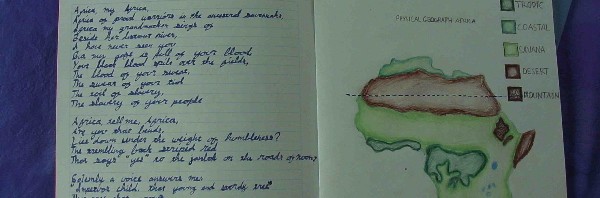 Africa, my Africa,
Africa of proud warriors in the ancestral savannahs,
Africa my grandmother sings of
Beside her distant river,
I have never seen you
But my gaze is full of your blood
Your black blood spilt over the fields,
The blood of your sweat,
The sweat of your toil
The toil of slavery,
The slavery of your people
Africa tell me, Africa,
Are you that bends,
Lies down under the weight of humbleness?
The trembling back striped red
That says "yes" to the on the roads of noon?
Solemnly a voice answers me:
"Impetuous child, that young and sturdy tree
PHYSICAL GEOGRAPH AFRICA
TROPIC
COASTAL
SAVANNA
DESERT
MOUNTAIN